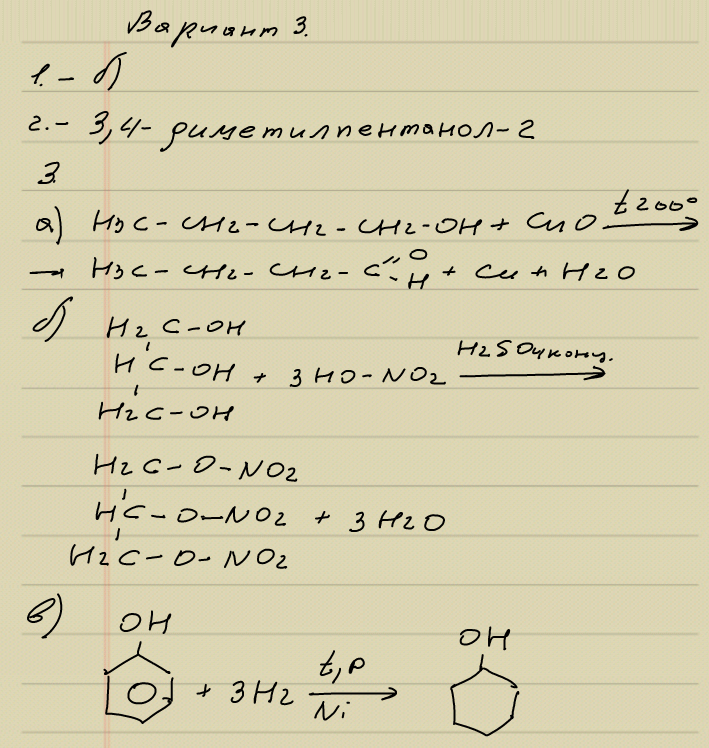 Вариант 3.
1. – б)
2. – 3,4- диметилпентанол-2
3.
а) H3C – CH2 – CH2 – CH2-OH + CuO t 200° →
→ H3C – CH2 – CH2 – C O H + Cu + H2O
б) H2C – OH
HC – OH + 3HO-NO2 H2SO4 конц. →
H2C – OH
H2C – O – NO2
HC – O – NO2 + 3H2O
H2C – O – NO2
в) OH OH
+ 3H2 t, p Ni →